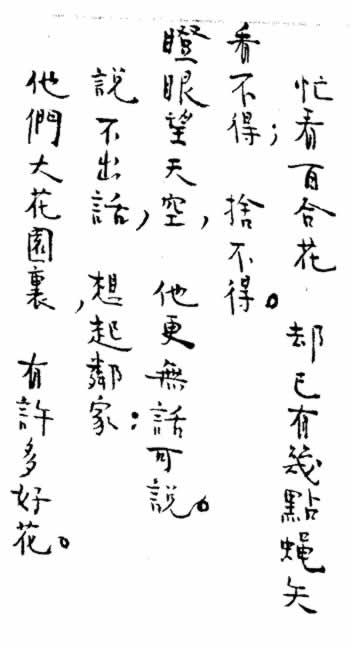 忙看百合花 却已有幾點蝇矢
看不得； 捨不得。
瞪眼望天空， 他更無話可說。
說不出話， 想起鄰家：
他們大花園裏， 有許多好花。